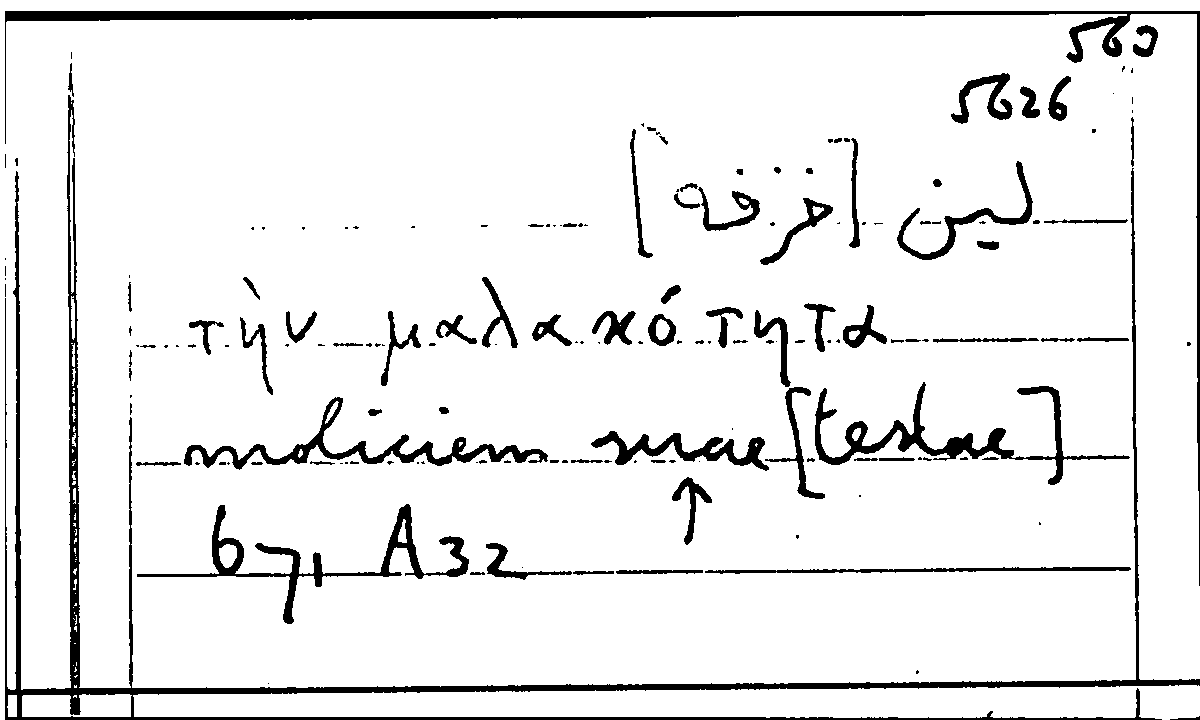 560
5626
لين [خزفه]
τὴν μαλακότητα
moliciem suae [testae]
↑
671 A32